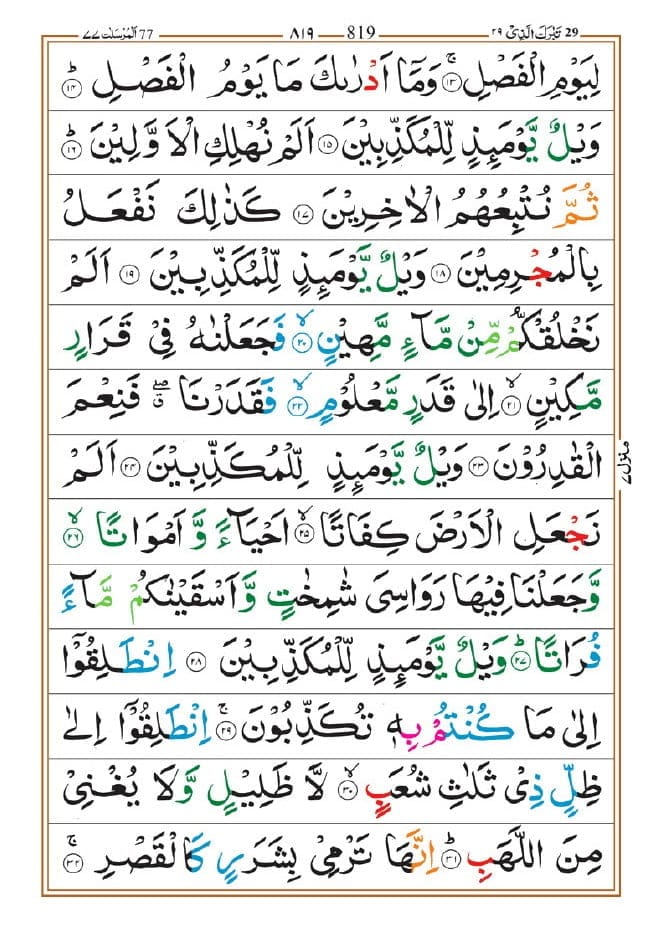 29 تَبٰرَكَ الَّذِىْ ٢٩
819 ٨١٩
77 اَلْمُرْسَلٰت ٧٧
لِيَوْمِ الْفَصْلِ ۚ ١٣ وَمَاۤ اَدْرٰىكَ مَا يَوْمُ الْفَصْلِ ؕ ١٤
وَيْلٌ يَّوْمَئِذٍ لِّلْمُكَذِّبِيْنَ ١٥ اَلَمْ نُهْلِكِ الْاَوَّلِيْنَ ؕ ١٦
ثُمَّ نُتْبِعُهُمُ الْاٰخِرِيْنَ ١٧ كَذٰلِكَ نَفْعَلُ
بِالْمُجْرِمِيْنَ ١٨ وَيْلٌ يَّوْمَئِذٍ لِّلْمُكَذِّبِيْنَ ١٩ اَلَمْ
نَخْلُقْكُّمْ مِّنْ مَّآءٍ مَّهِيْنٍ ۙ ٢٠ فَجَعَلْنٰهُ فِىْ قَرَارٍ
مَّكِيْنٍ ۙ ٢١ اِلٰى قَدَرٍ مَّعْلُوْمٍ ۙ ٢٢ فَقَدَرْنَا ۖۗ فَنِعْمَ
الْقٰدِرُوْنَ ٢٣ وَيْلٌ يَّوْمَئِذٍ لِّلْمُكَذِّبِيْنَ ٢٤ اَلَمْ
نَجْعَلِ الْاَرْضَ كِفَاتًا ۙ ٢٥ اَحْيَآءً وَّ اَمْوَاتًا ۙ ٢٦
وَّجَعَلْنَا فِيْهَا رَوَاسِىَ شٰمِخٰتٍ وَّاَسْقَيْنٰكُمْ مَّآءً
فُرَاتًا ؕ ٢٧ وَيْلٌ يَّوْمَئِذٍ لِّلْمُكَذِّبِيْنَ ٢٨ اِنْطَلِقُوْۤا
اِلٰى مَا كُنْتُمْ بِهٖ تُكَذِّبُوْنَ ۚ ٢٩ اِنْطَلِقُوْۤا اِلٰى
ظِلٍّ ذِىْ ثَلٰثِ شُعَبٍ ۙ ٣٠ لَّا ظَلِيْلٍ وَّلَا يُغْنِىْ
مِنَ اللَّهَبِ ؕ ٣١ اِنَّهَا تَرْمِىْ بِشَرَرٍ كَالْقَصْرِ ۚ ٣٢
منزل ٧